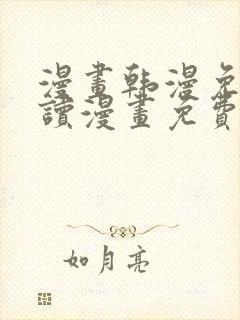 漫畫韩漫免
讀漫畫免費
如月亮